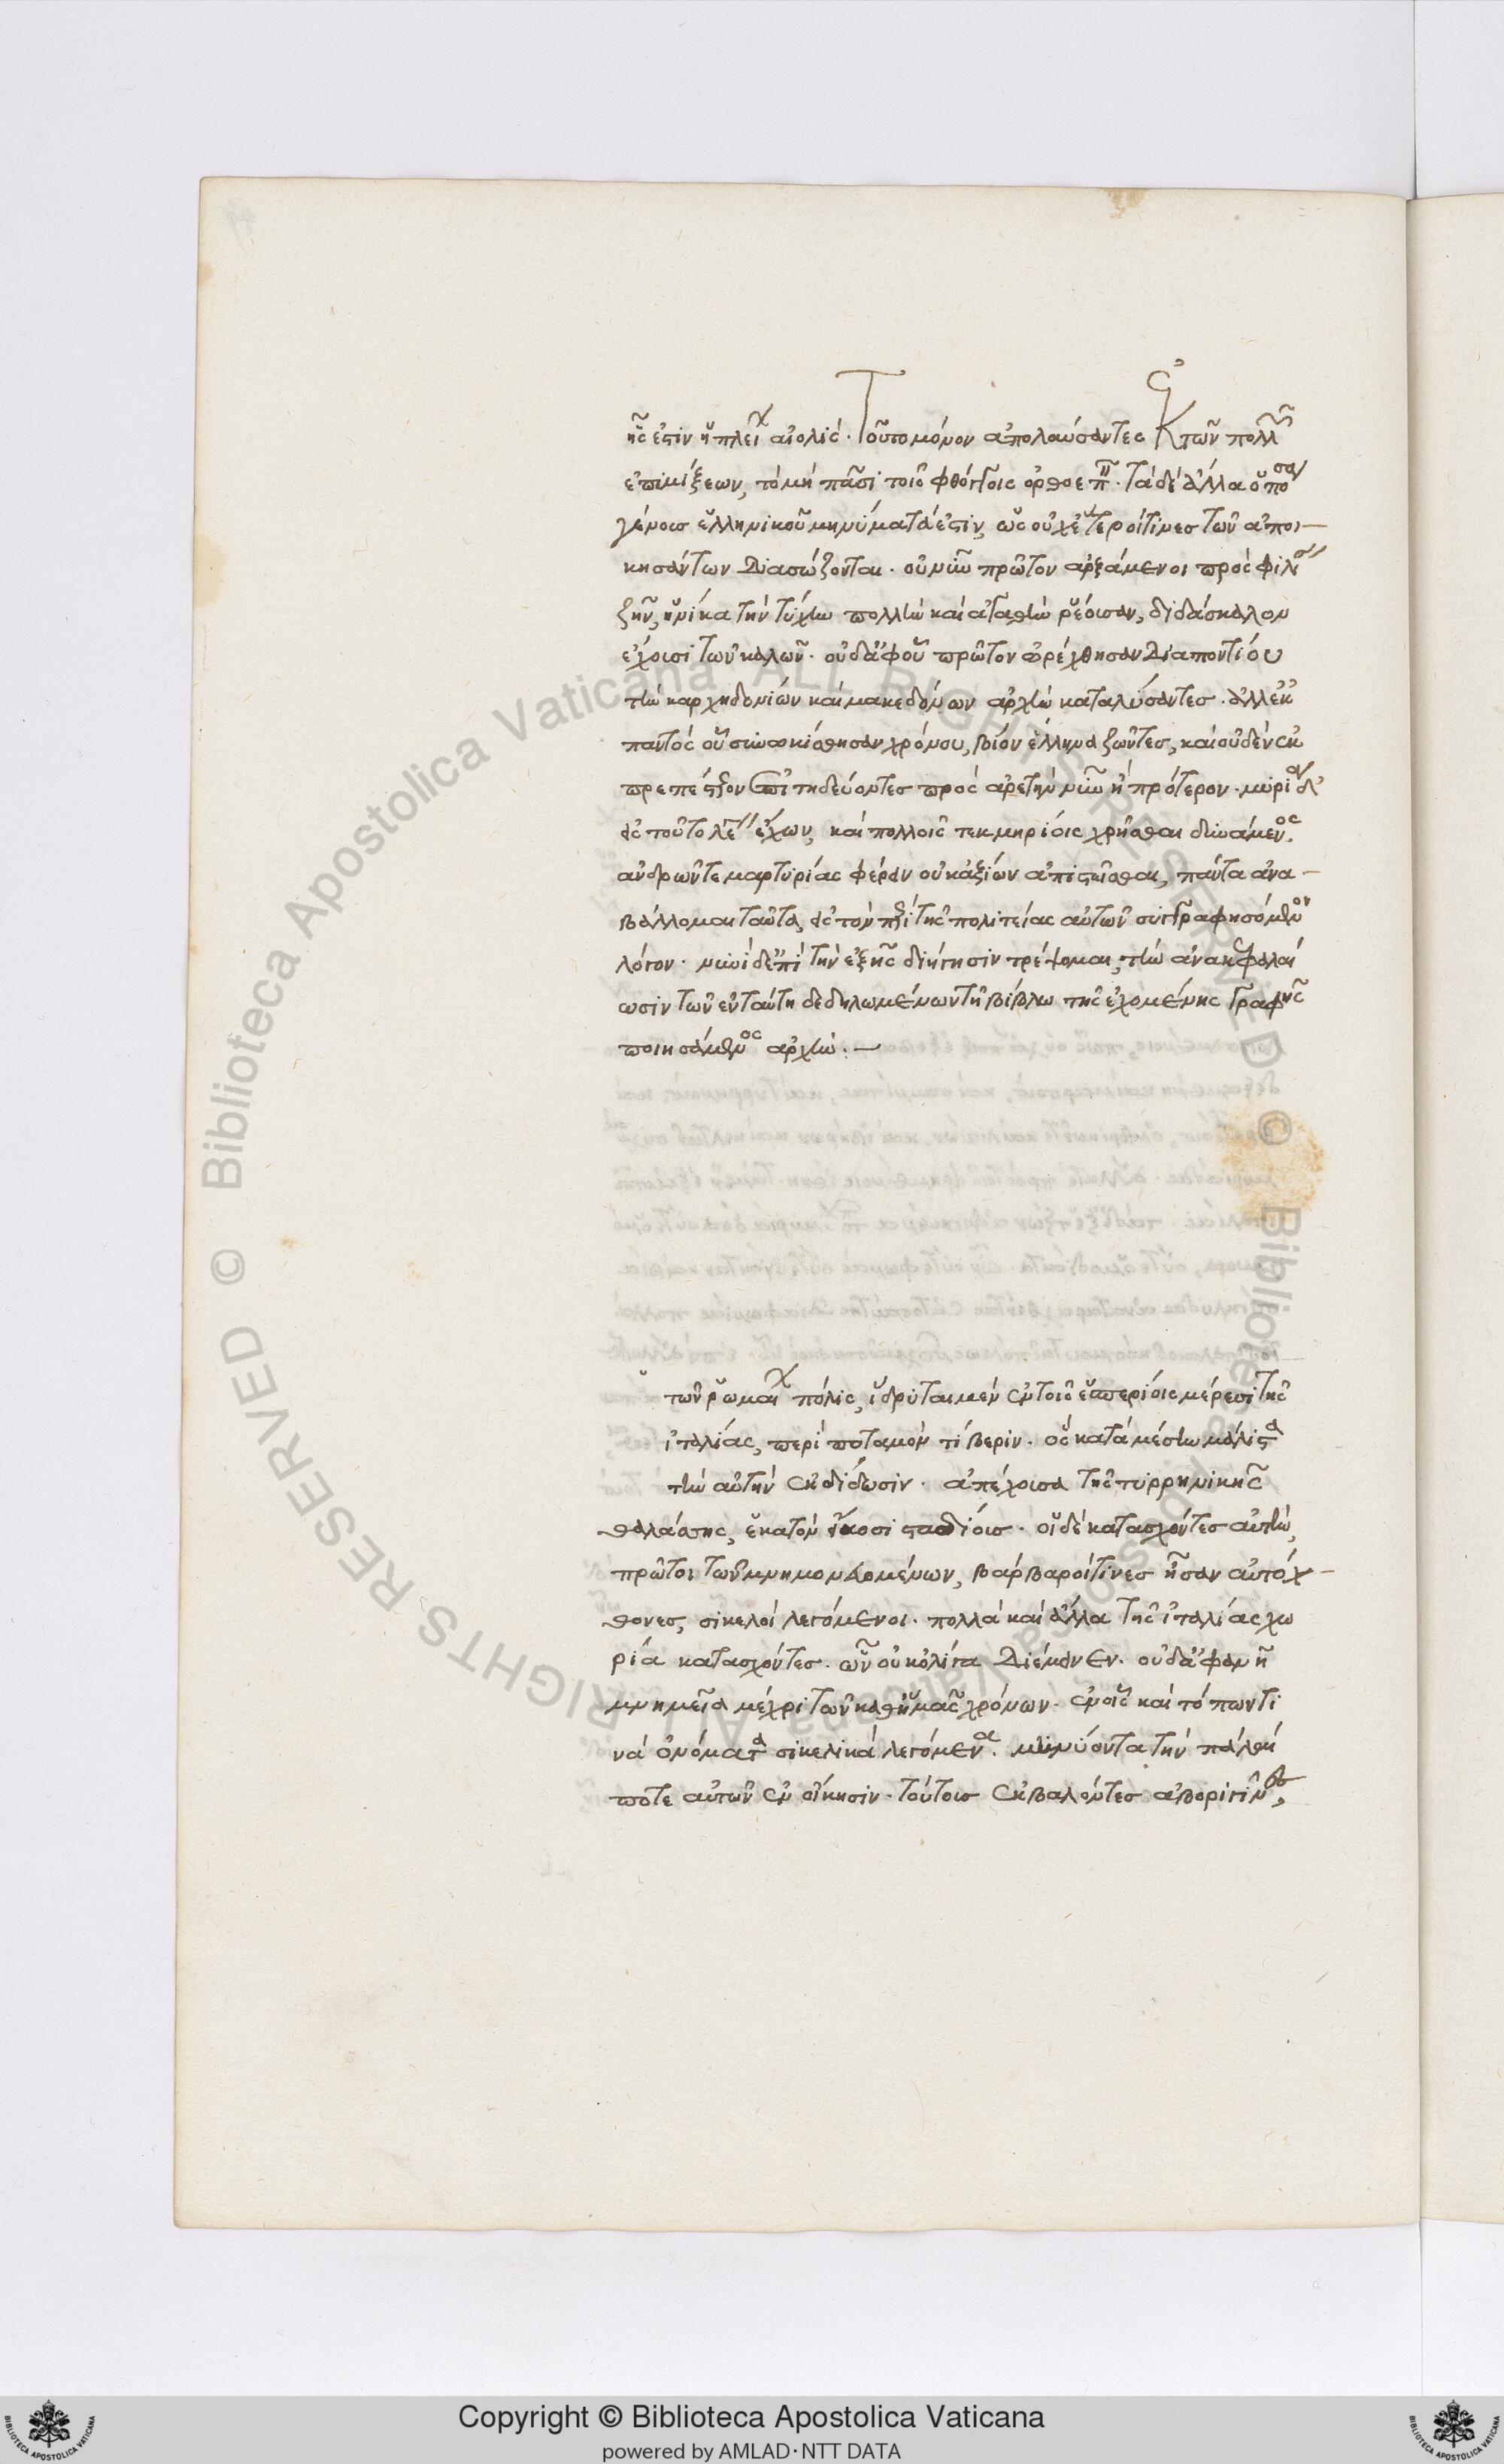 ἧς ἐστιν ἡ πλείχ αἰολίς. Τοῦτο μόνον ἀπολαύσαντες ἐκ τῶν πολλῶν
ἐπιμίξεων, τὸ μὴ πᾶσι τοῖς φθόγγοις ὀρθοεπῆ. τὰ δὲ ἄλλα ὁπόσα
γένους ἑλληνικοῦ μηνύματά ἐστιν, ὡς οὐχ ἕτεροί τινες τῶν ἀποι-
κησάντων διασώζονται. οὐ νῦν πρῶτον ἀρξάμενοι πρὸς φιλ
ζῆν, ἡνίκα τὴν τύχην πολλὴν καὶ ἀγαθὴν ῥέουσαν, διδάσκαλον
ἔχουσι τῶν καλῶν. οὐδ' ἀφ' οὗ πρῶτον ὠρέχθησαν διαποντίου
τὴν καρχηδονίων καὶ μακεδόνων ἀρχὴν καταλύσαντες. ἀλλ' ἐκ
παντὸς οὗ συνωκίσθησαν χρόνου, βίον ἕλληνα ζῶντες, καὶ οὐδὲν ἐκ
πρεπέστερον ἐπιτηδεύοντες πρὸς ἀρετὴν νῦν ἢ πρότερον. μυρία δ'
εἰς τοῦτο λέγ ἔχων, καὶ πολλοῖς τεκμηρίοις χρῆσθαι δυνάμενος.
ἀνδρῶν τε μαρτυρίας φέρειν οὐκ ἀξίων ἀπιστεῖσθαι, πάντα ἀνα-
βάλλομαι ταῦτα, εἰς τὸν περὶ τῆς πολιτείας αὐτῶν συγγραφησόμενον
λόγον. νυνὶ δ' ἐπὶ τὴν ἑξῆς διήγησιν τρέψομαι, τὴν ἀνακεφαλαί
ωσιν τῶν ἐν ταύτῃ δεδηλωμένων τῇ βίβλῳ τῆς ἐχομένης γραφῆς
ποιησάμενος ἀρχήν.—
τῶν ῥωμαίχ πόλις, ἵδρυται μὲν ἐν τοῖς ἑσπερίοις μέρεσι τῆς
ἰταλίας, περὶ ποταμὸν τίβεριν. ὃς κατὰ μέσην μάλιστα
τὴν αὐτὴν ἐκδίδωσιν. ἀπέχουσα τῆς τυρρηνικῆς
θαλάσσης, ἑκατὸν εἴκοσι σταδίοις. οἱ δὲ κατασχόντες αὐτὴν,
πρῶτοι τῶν μνημονευομένων, βάρβαροί τινες ἦσαν αὐτόχ-
θονες, σικελοὶ λεγόμενοι. πολλὰ καὶ ἄλλα τῆς ἰταλίας χω
ρία κατασχόντες. ὧν οὐκ ὀλίγα διέμεινεν. οὐδ' ἀφανῆ
μνημεῖα μέχρι τῶν καθ' ἡμᾶς χρόνων. ἐν οἷς καὶ τόπων τι
νὰ ὀνόματα σικελικὰ λεγόμενα. μηνύοντα τὴν πάλαι
ποτε αὐτῶν ἐν οἴκησιν. τούτους ἐκβαλόντες ἀβοριγῖνες,
Copyright © Biblioteca Apostolica Vaticana
powered by AMLAD·NTT DATA
© Biblioteca Apostolica Vaticana ALL RIGHTS RESERVED
© Biblioteca Apostolica Vaticana ALL RIGHTS RESERVED